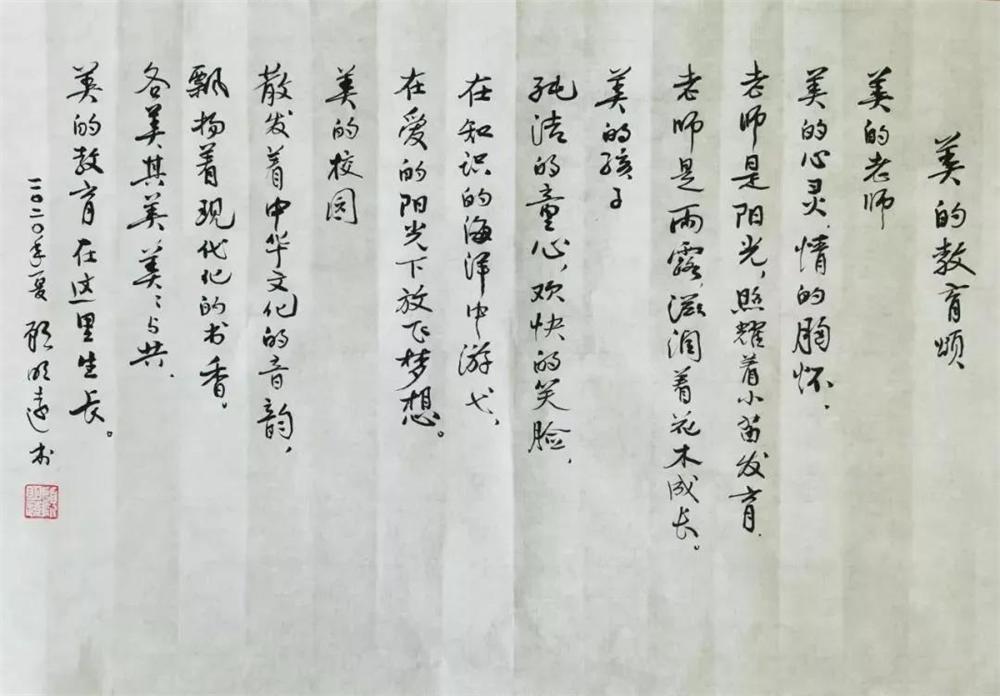 美的教育颂
美的老师
美的心灵，情的胸怀，
老师是阳光，照耀着小苗发育，
老师是雨露，滋润着花木成长。
美的孩子
纯洁的童心，欢快的笑脸，
在知识的海洋中游弋，
在爱的阳光下放飞梦想。
美的校园
散发着中华文化的音韵，
飘扬着现代化的书香。
各美其美美〻与共，
美的教育在这里生长。
二〇二〇年夏 顾明远书